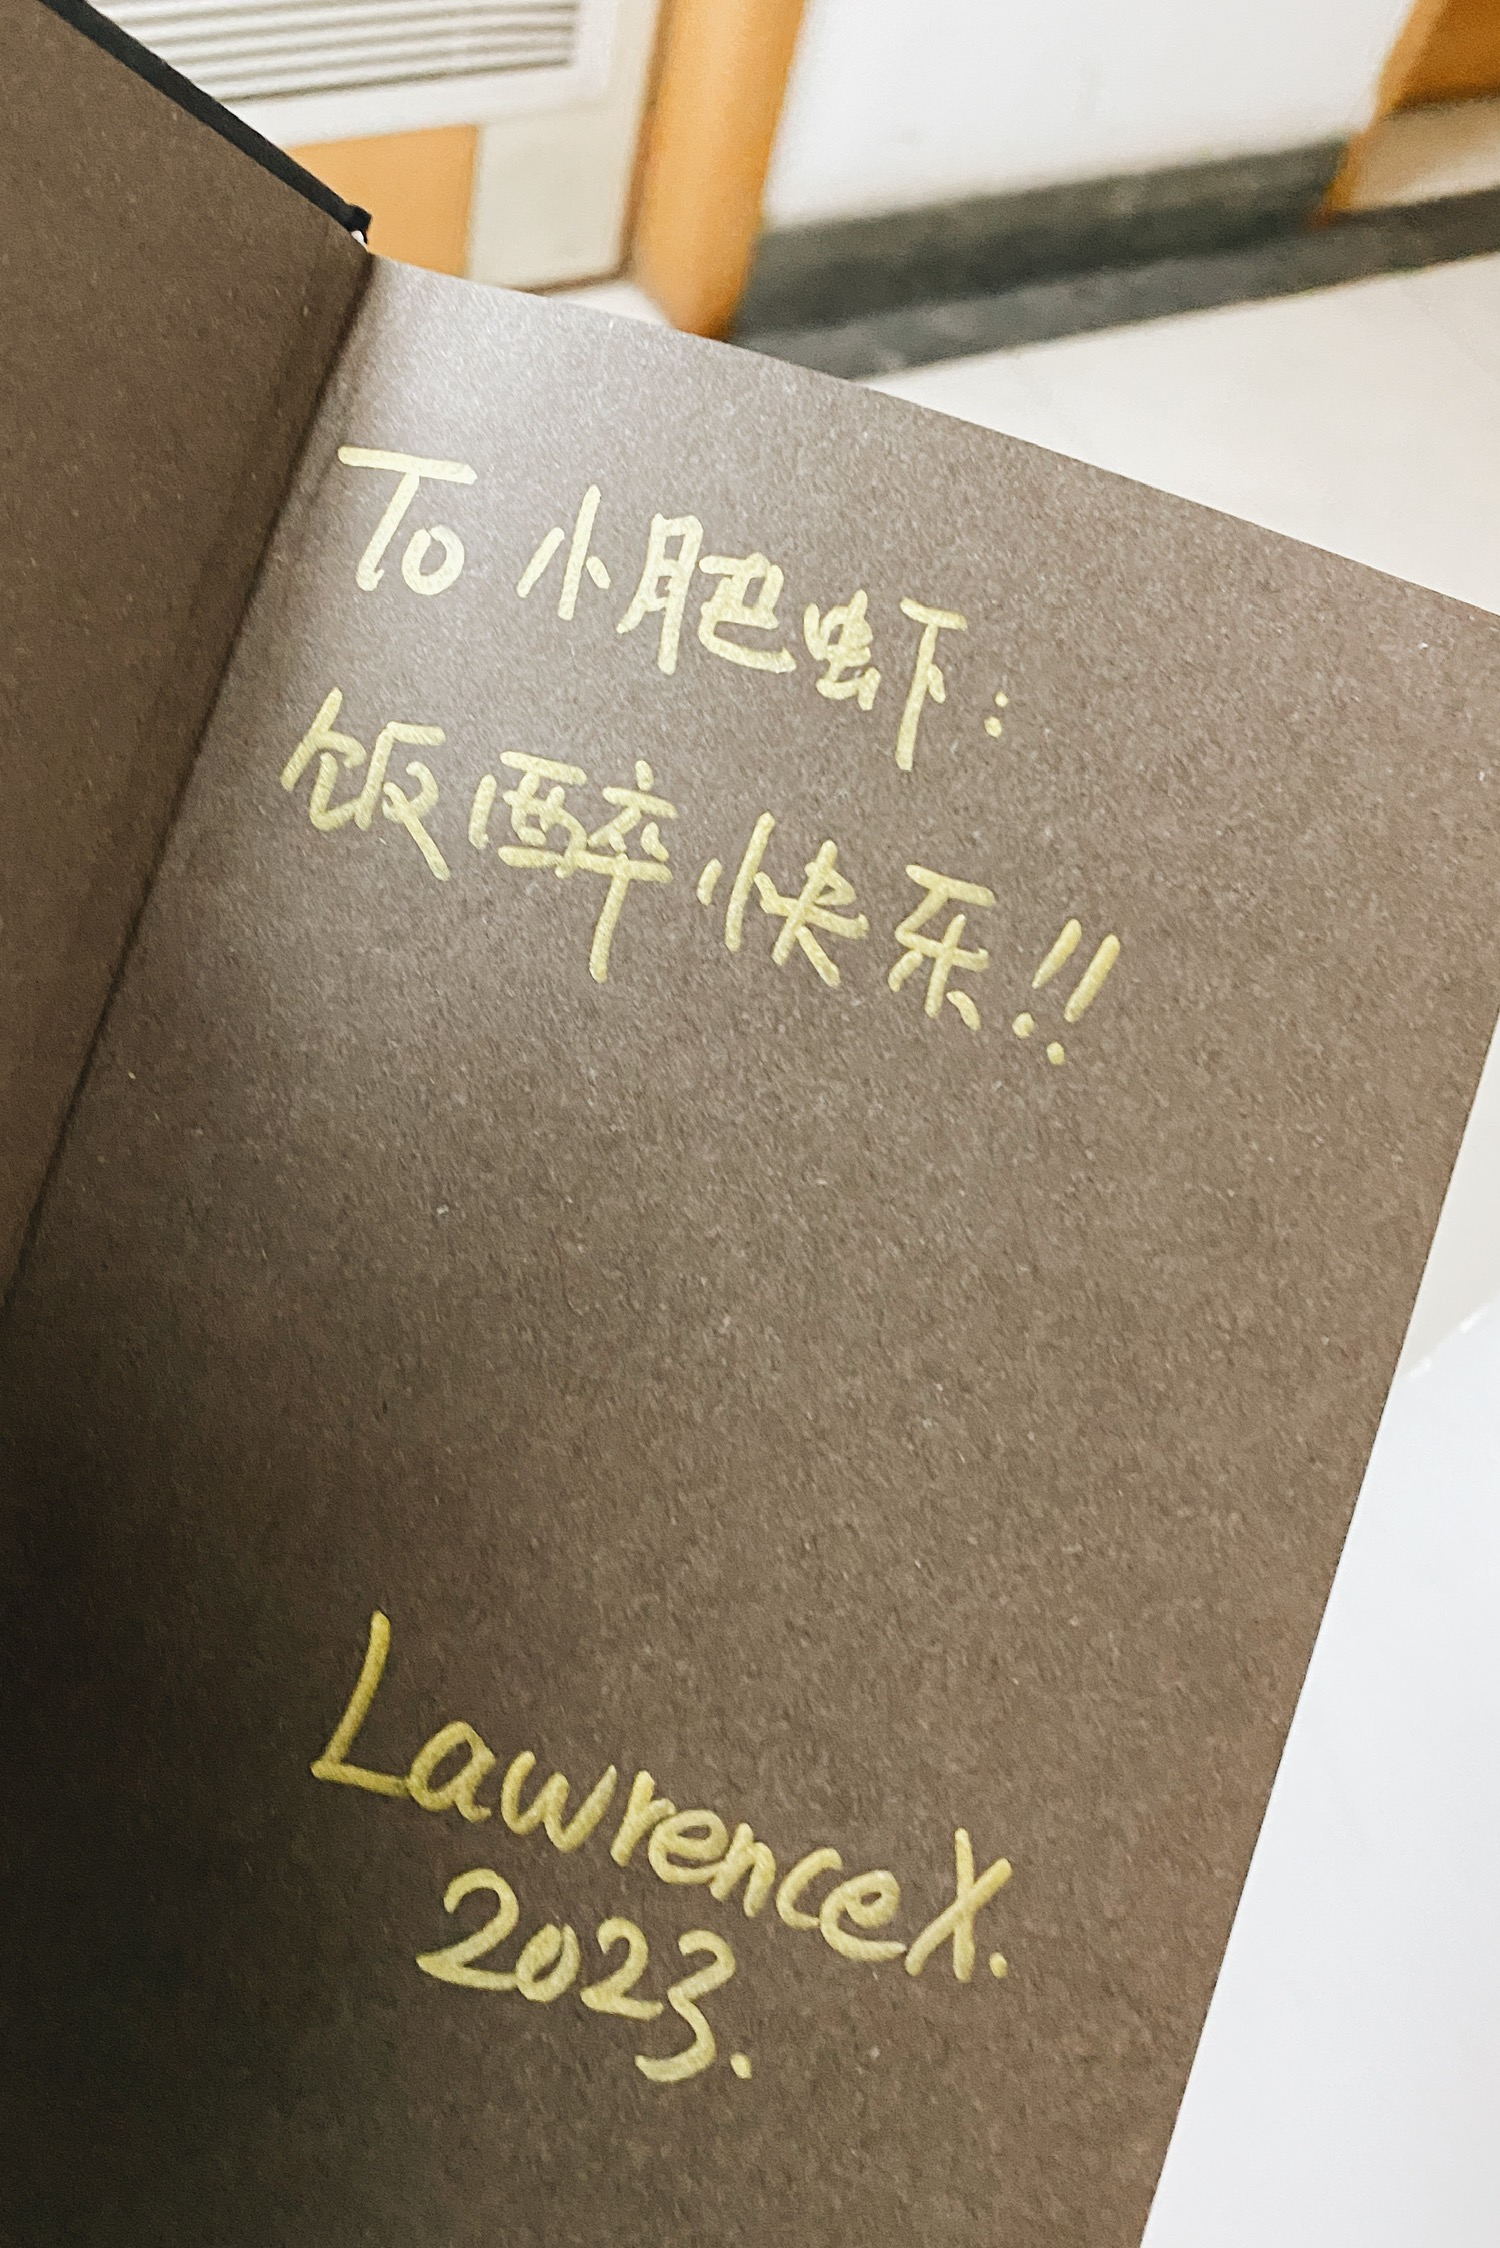 To 小肥虾:
饭醉快乐!!
LawrenceX.
2023.